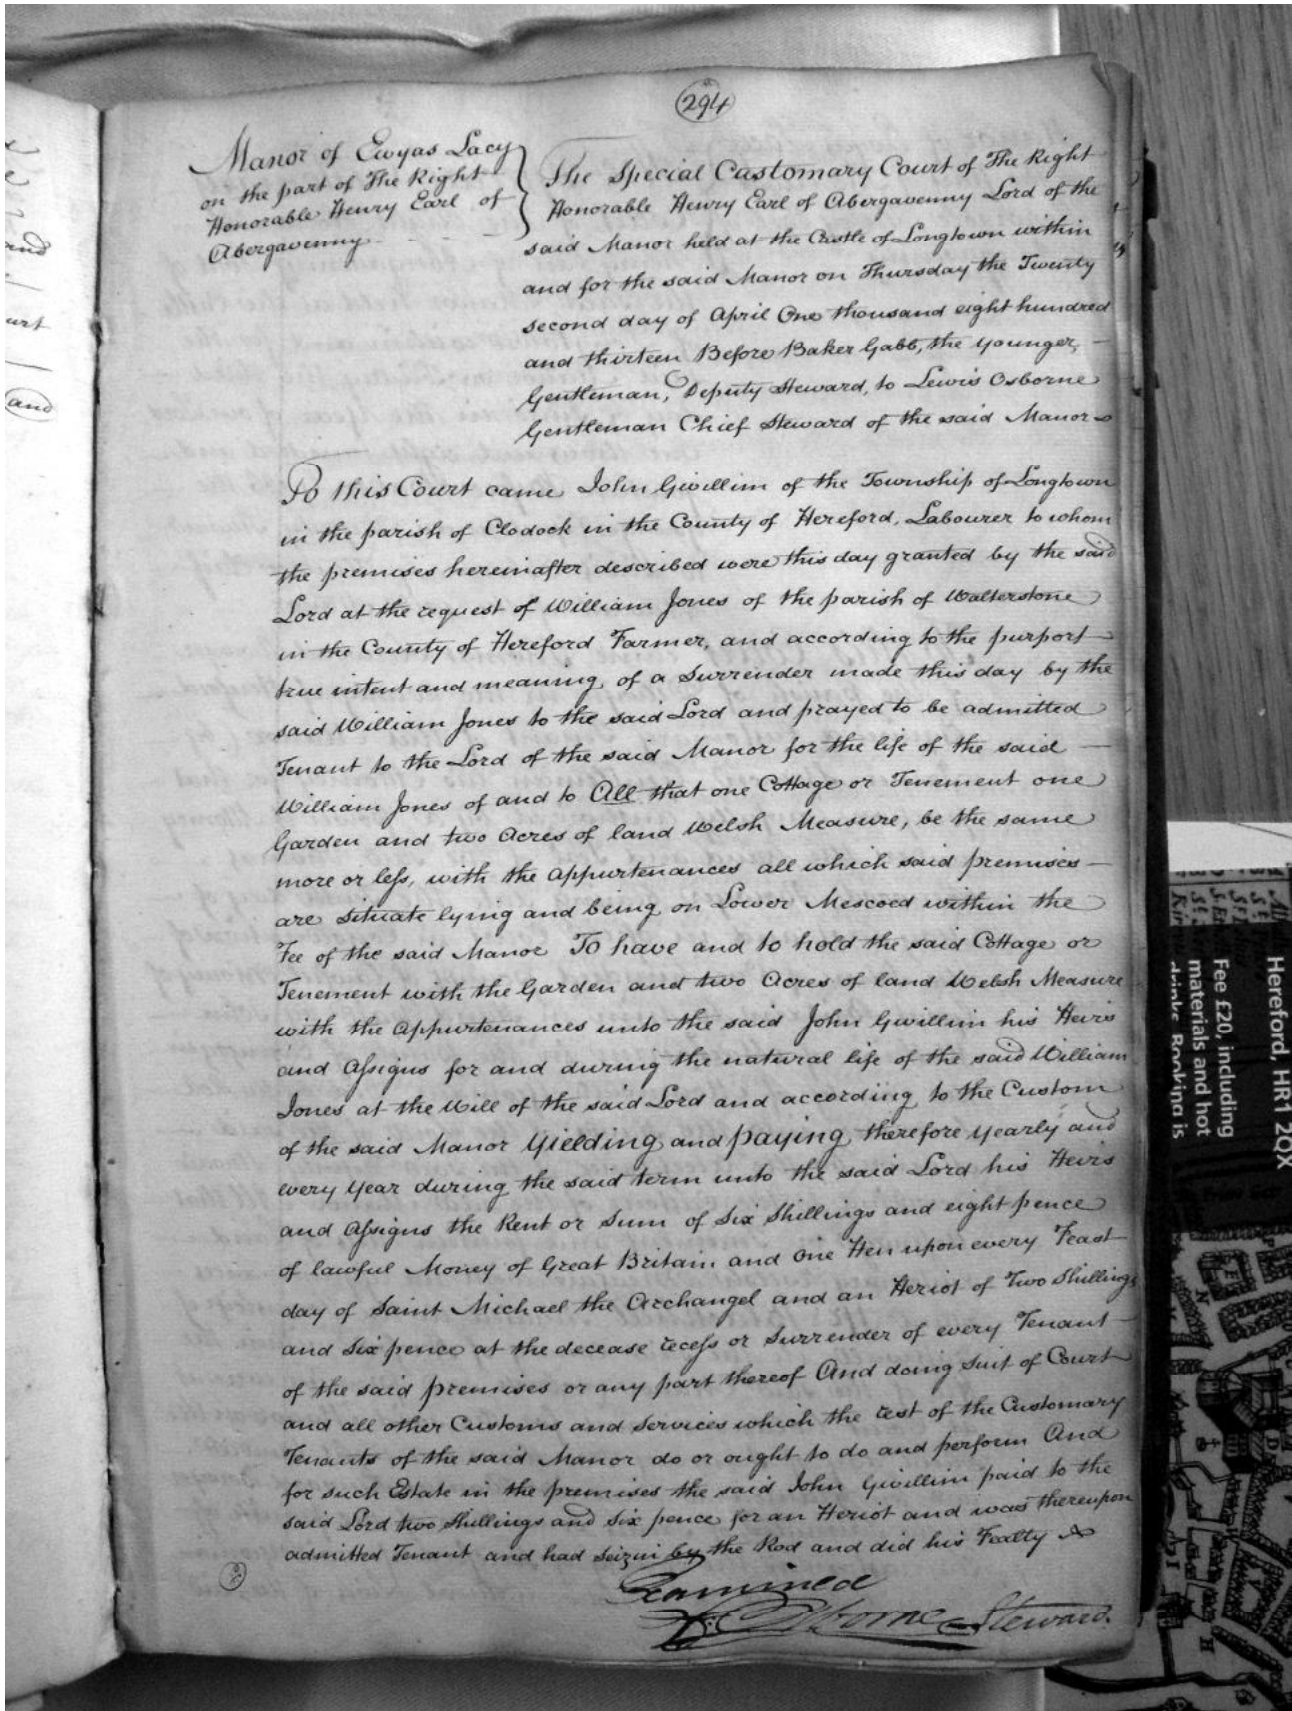 294
Manor of Ewyas Lacy
on the part of The Right
Honorable Henry Earl of
Abergavenny
The Special Castomary Court of The Right
Honorable Henry Earl of Abergavenny Lord of the
said Manor held at the Castle of Longtown within
and for the said Manor on Thursday the Twenty
second day of April One thousand eight hundred
and thirteen Before Baker Gabb, the younger,
Gentleman, Deputy Steward, to Lewis Osborne
Gentleman Chief Steward of the said Manor
To this Court came John Gwillim of the Township of Longtown
in the parish of Clodock in the County of Hereford, Labourer to whom
the premises hereinafter described were this day granted by the said
Lord at the request of William Jones of the parish of Walterstone
in the County of Hereford Farmer, and according to the purport
true intent and meaning of a Surrender made this day by the
said William Jones to the said Lord and prayed to be admitted
Tenant to the Lord of the said Manor for the life of the said
William Jones of and to All that one Cottage or Tenement one
Garden and two Acres of land Welsh Measure, be the same
more or less, with the appurtenances all which said premises
are situate lying and being on Lower Mescoed within the
Fee of the said Manor To have and to hold the said Cottage or
Tenement with the Garden and two Acres of land Welsh Measure
with the appurtenances unto the said John Gwillim his Heirs
and Assigns for and during the natural life of the said William
Jones at the Will of the said Lord and according to the Custom
of the said Manor Yielding and paying therefore yearly and
every year during the said term unto the said Lord his Heirs
and Assigns the Rent or Sum of Six Shillings and eight pence
of lawful Money of Great Britain and One Hen upon every Feast
day of Saint Michael the Archangel and an Heriot of Two Shillings
and Six pence at the decease recess or Surrender of every Tenant
of the said premises or any part thereof And doing Suit of Court
and all other Customs and Services which the rest of the Customary
Tenants of the said Manor do or ought to do and perform And
for such Estate in the premises the said John Gwillim paid to the
said Lord two Shillings and Six pence for an Heriot and was thereupon
admitted Tenant and had Seizin by the Rod and did his Fealty
Examined
Osborne Steward.
and
and
Hereford, HR1 2QX
Fee £20, including
materials and hot
drinks. Booking is